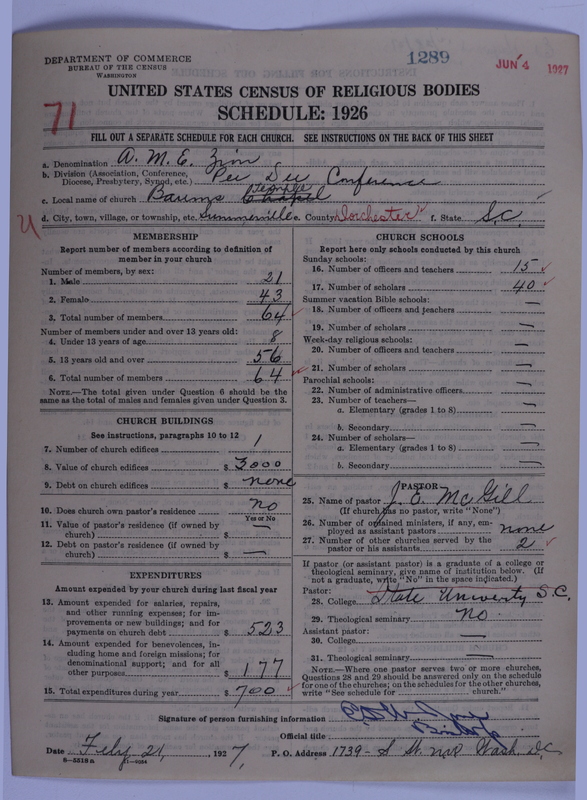 DEPARTMENT OF COMMERCE
BUREAU OF THE CENSUS
WASHINGTON
1289
JUN 4 1927
UNITED STATES CENSUS OF RELIGIOUS BODIES
SCHEDULE: 1926
71
FILL OUT A SEPARATE SCHEDULE FOR EACH CHURCH. SEE INSTRUCTIONS ON THE BACK OF THIS SHEET
a. Denomination A. M. E. Zion
b. Division (Association, Conference, Diocese, Presbytery, Synod, etc.) Pee Dee Conference
c. Local name of church Baums Temple
d. City, town, village, or township, etc. Summerville e. County Dorchester f. State S.C.
MEMBERSHIP
Report number of members according to definition of
member in your church
Number of members, by sex:
1. Male 21
2. Female 43
3. Total number of members 64
Number of members under and over 13 years old:
4. Under 13 years of age 8
5. 13 years old and over 56
6. Total number of members 64
NOTE.—The total given under Question 6 should be
same as the total of males and females given under Question 3.
CHURCH BUILDINGS
See instructions, paragraphs 10 to 12
7. Number of church edifices 1
8. Value of church edifices $ 3000
9. Debt on church edifices $ none
10. Does church own pastor's residence no
Yes or No
11. Value of pastor's residence (if owned by
church) $ —
12. Debt on pastor's residence (if owned by
church) $ —
EXPENDITURES
Amount expended by your church during last fiscal year
13. Amount expended for salaries, repairs,
and other running expenses; for im-
provements or new buildings; and for
payments on church debt $ 523
14. Amount expended for benevolences, in-
cluding home and foreign missions; for
denominational support; and for all
other purposes $ 177
15. Total expenditures during year $ 700
CHURCH SCHOOLS
Report here only schools conducted by this church
Sunday schools:
16. Number of officers and teachers 15
17. Number of scholars 40
Summer vacation Bible schools:
18. Number of officers and teachers —
19. Number of scholars —
Week-day religious schools:
20. Number of officers and teachers —
21. Number of scholars —
Parochial schools:
22. Number of administrative officers —
23. Number of teachers—
a. Elementary (grades 1 to 8) —
b. Secondary —
24. Number of scholars—
a. Elementary (grades 1 to 8) —
b. Secondary —
PASTOR
25. Name of pastor J. E. McGill
(If church has no pastor, write "None")
26. Number of ordained ministers, if any, em-
ployed as assistant pastors none
27. Number of other churches served by the
pastor or his assistants 2
If pastor (or assistant pastor) is a graduate of a college or
theological seminary, give name of institution below. (If
not a graduate, write "No" in the space indicated.)
Pastor:
28. College State University S.C.
29. Theological seminary no
Assistant pastor:
30. College —
31. Theological seminary —
NOTE.—Where one pastor serves two or more churches,
Questions 28 and 29 should be answered only on the schedule
for one of the churches; on the schedules for the other churches,
write "See schedule for church."
Signature of person furnishing information
Official title Bishop
Date Feby 21, 1927, P. O. Address 1739 - S St. N.W. Wash. D.C.
8—5518a 11—9034